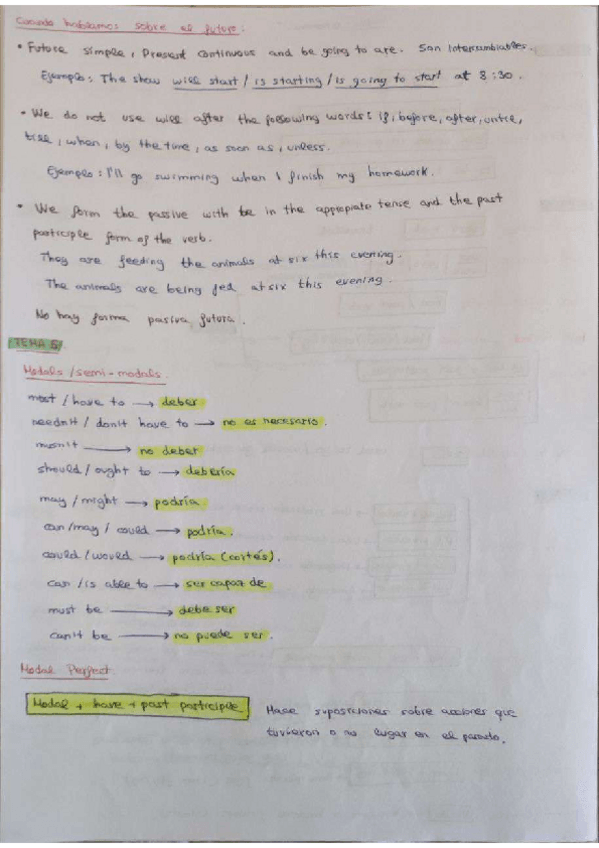 Cuando hablamos sobre el futuro:
• Future simple, Present continuous and be going to are. Son intercambiables.
Ejemplo: The show will start / is starting / is going to start at 8:30.
• We do not use will after the following words: if, before, after, until,
till, when, by the time, as soon as, unless.
Ejemplo: I'll go swimming when I finish my homework.
• We form the passive with be in the appropiate tense and the past
participle form of the verb.
They are feeding the animals at six this evening.
The animals are being fed at six this evening.
No hay forma pasiva futura.
TEMA 5
Modals / semi-modals.
must / have to → deber
needn't / don't have to → no es necesario.
musn't → no deber
should / ought to → debería
may / might → podría
can / may / could → podría.
could / would → podría (cortés).
can / is able to → ser capaz de
must be → debe ser
can't be → no puede ser.
Modal Perfect.
Modal + have + past participle
Hace suposiciones sobre acciones que
tuvieron o no lugar en el pasado.